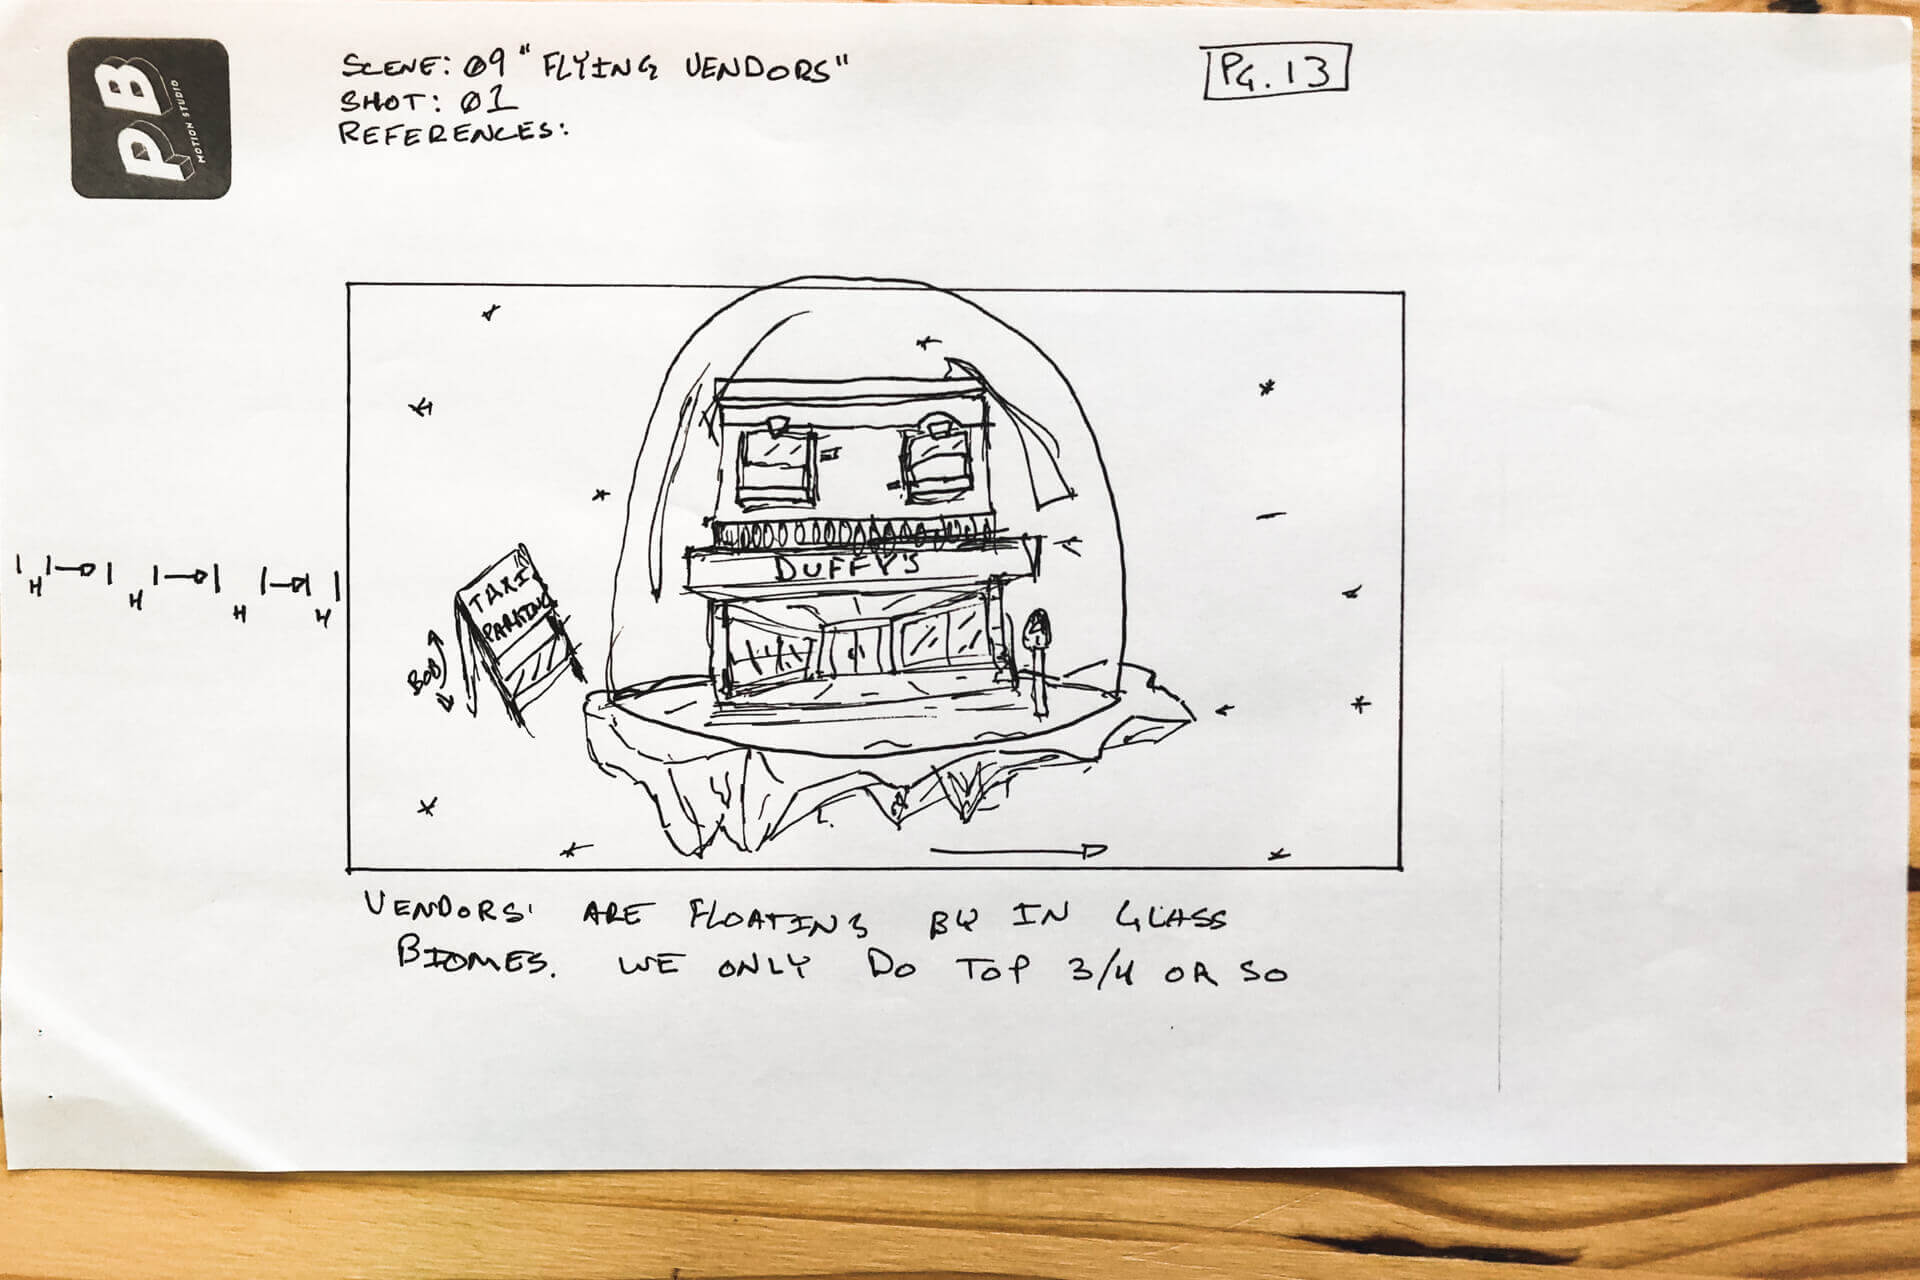 PB
MOTION STUDIO
SCENE: 09 "FLYING VENDORS"
SHOT: 01
REFERENCES:
PG. 13
H H H H
TAXI
PARKING
BOB
DUFFY'S
VENDORS' ARE FLOATING BY IN GLASS
BIOMES. WE ONLY DO TOP 3/4 OR SO